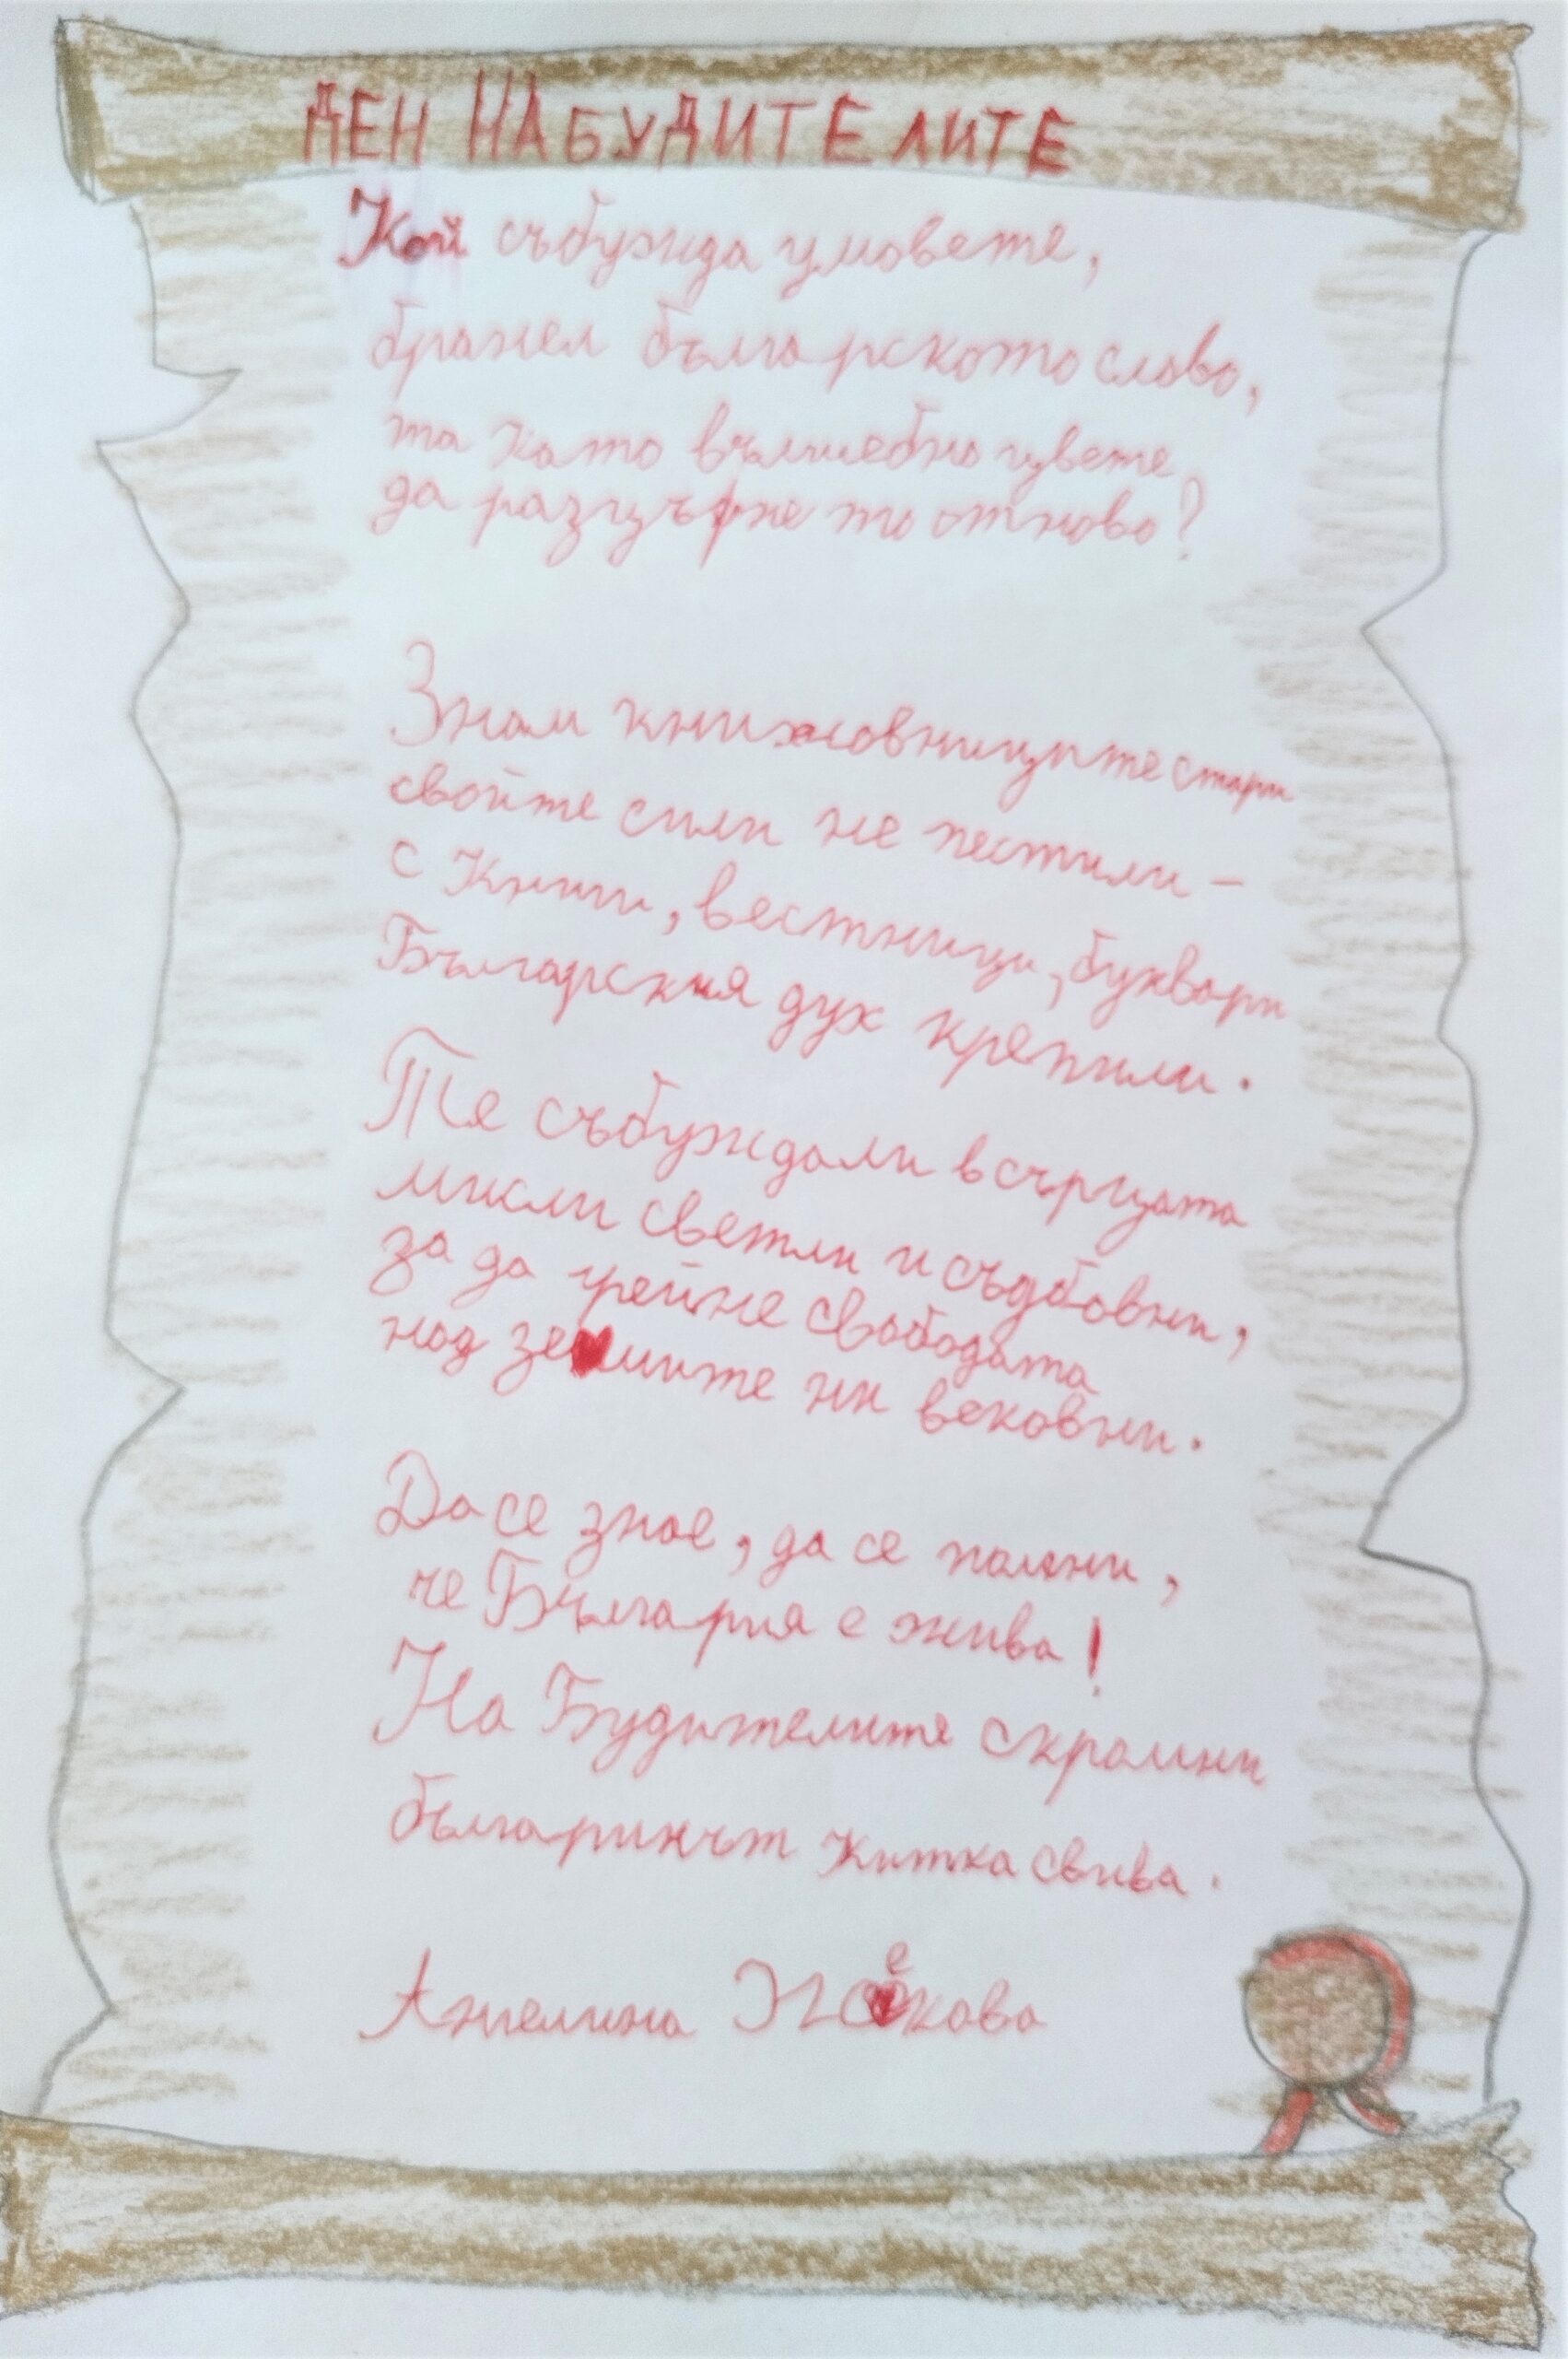 ДЕН НА БУДИТЕЛИТЕ
Кой събужда умовете,
бранел българското слово,
та като вълшебно цвете
да разцъфне то отново?
Знам книжовниците стари
свойте сили не пестили –
с Книги, вестници, буквари
Българския дух крепили.
Те събуждали в сърцата
мисли светли и съдбовни,
за да грейне свободата
над земиите ни вековни.
Да се знае, да се помни,
че България е жива!
На Будителите скромни
българинът китка свива.
Ангелина